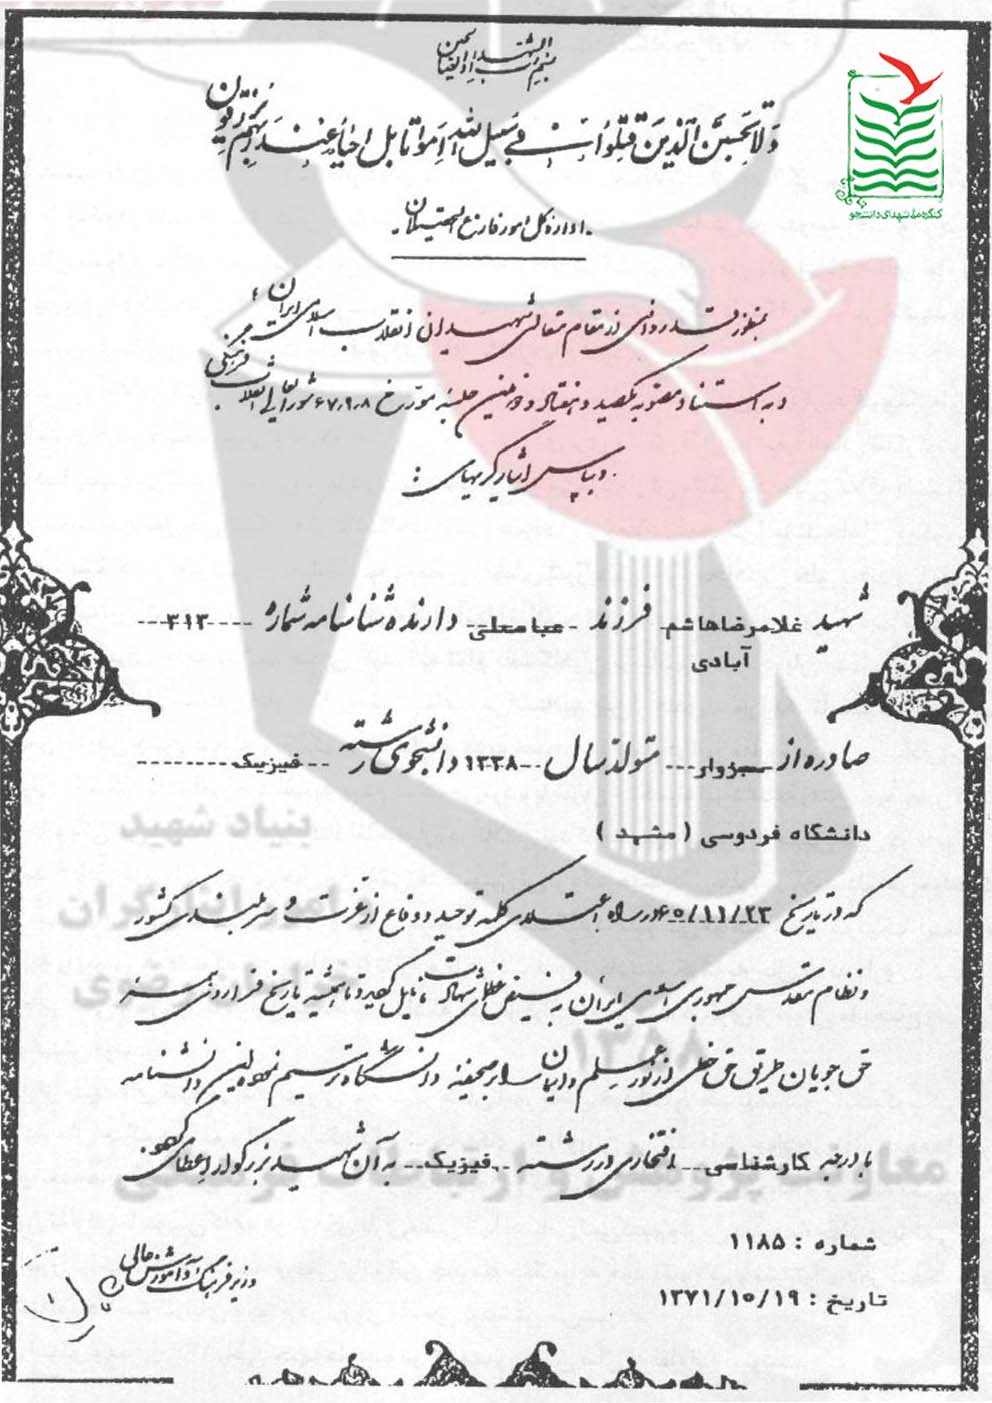 بسم رب الشهداء و الصدیقین
ولا تحسبن الذین قتلوا فی سبیل الله امواتا بل احیاء عند ربهم یرزقون
کنگره ملی شهدای دانشجو
اداره کل امور فارغ التحصیلان
بمنظور قدردانی از مقام متعالی شهیدان انقلاب اسلامی ایران
و به استناد مصوبه یکصد و هفتاد و دومین جلسه مورخ ۶۷٫۹٫۸ شورایعالی انقلاب فرهنگی
و بپاس ایثارگریهای :
شهید غلامرضا هاشم فرزند عباسعلی دارنده شناسنامه شماره ۳۱۳
آبادی
صادره از سبزوار متولد سال ۱۳۳۸ دانشجوی رشته فیزیک
دانشگاه فردوسی ( مشهد )
بنیاد شهید
و امور ایثارگران
که در تاریخ ۶۰/۱۱/۲۳ در راه اعتلای کلمه توحید و دفاع از عزت و سربلندی کشور
خراسان رضوی
و نظام مقدس جمهوری اسلامی ایران به فیض عظمای شهادت نایل گردید تا همیشه تاریخ فرا روی
۱۳۵۸
حق جویان طریق حق خطی از نور علم و ایمان را بر صحیفه دانشگاه ترسیم نمود این دانشنامه
معاونت پژوهش و ارتباطات فرهنگی
با درجه کارشناسی افتخاری در رشته فیزیک به آن شهید بزرگوار اعطا می گردد
شماره : ۱۱۸۵
وزیر فرهنگ و آموزش عالی
تاریخ : ۱۳۷۱/۱۰/۱۹